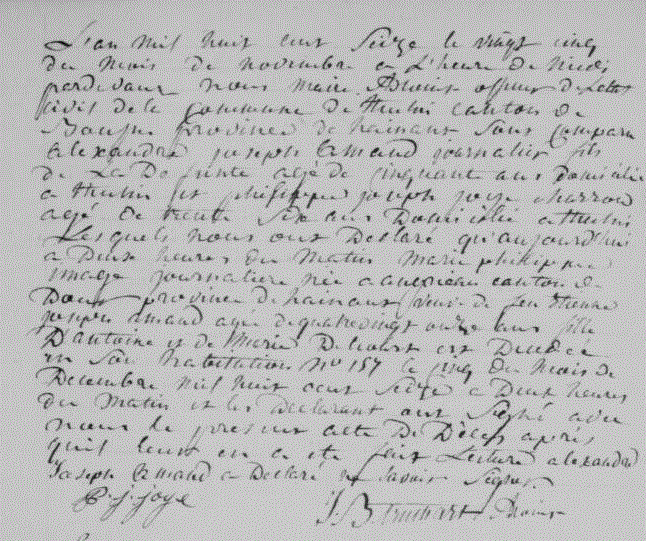 L'an mil huit cent seize le vingt cinq
du mois de novembre a L'heure de midi
pardevant nous maire adjoint officier de Letat
civil de la commune de thulin canton de
Boussu province de hainaut sont comparu
alexandre joseph amand journalier fils
de La Defunte agé de cinquante ans domicilié
a thulin et philippe joseph joye charron
agé de trente six ans Domicilié a thulin
Lesquels nous ont Declaré qu'aujourd'hui
a Deux heures du Matin marie philippine
image journaliere née a canton de
Dour province de hainaut veuve de feu etienne
joseph amand agée de quatrevingt onze ans fille
D'antoine et de Marie est Decedée
en son habitation no 157 le cinq du mois de
Decembre mil huit cent seize a Deux heures
du Matin et les Declarant ont signé avec
nous le present acte De Décès après
quil leur en a ete fait Lecture alexandre
Joseph amand a Declaré ne savoir signer
P. j. joye
J. B. adjoint